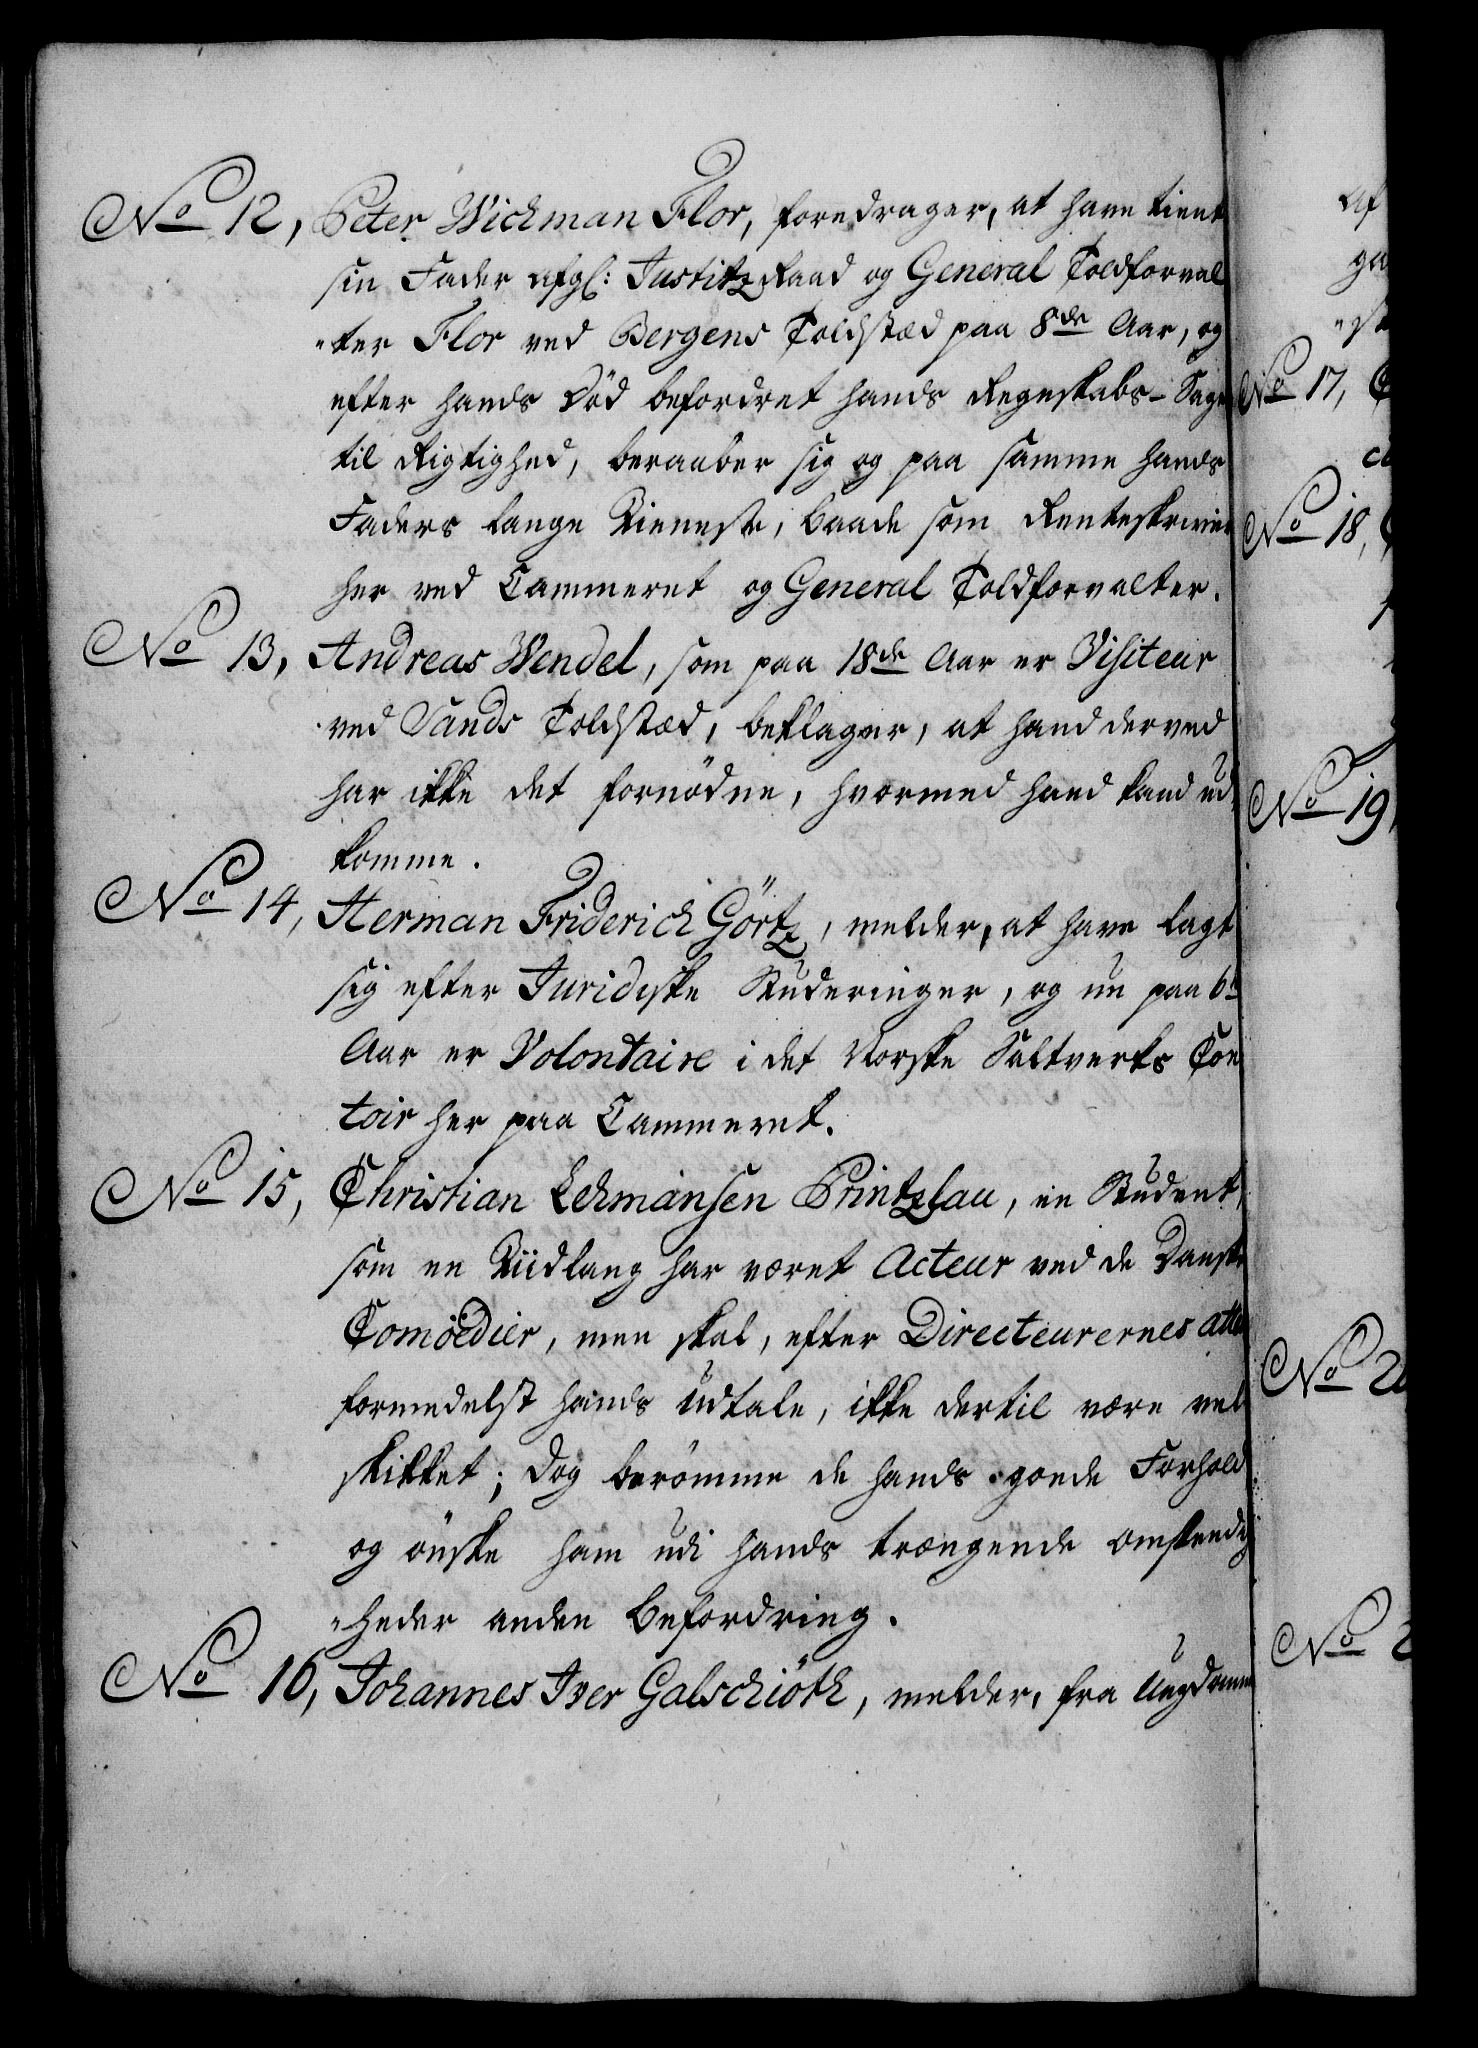 No 12, Peter Wichman Flor, foredrager, at have tient
sin Fader afgl: JustitzRaad og General Toldforval
"ter Flor ved Bergens Toldstæd paa 8de Aar, og
efter hands Död befordret hands Regnskabs-Sager
til Rigtighed, beraaber sig og paa samme hands
Faders lange Tieneste, baade som Renteskriver
her ved Cammeret og General Toldforvalter.
No 13, Andreas Wendel, som paa 18de Aar er Visiteur
ved Sands Toldstæd, beklager, at hand derved
har ikke det fornödne, hvormed hand kand ud,
komme.
No 14, Herman Friderich Görtz, melder, at have lagt
sig efter Juridiske Studeringer, og nu paa 6te
Aar er Volontaire i det Norske Saltverks Con
toir her paa Cammeret.
No 15, Christian Lehmansen Printzlau, en Student,
som en Tiidlang har været Acteur ved de Danske
Comoedier, men skal, efter Directeurernes atte
formedelst hands udtale, ikke dertil være vel
skikket; dog berömme de hands goede Forhold
og önske ham udi hands trængende omstændig
"heder anden Befordring.
No 16, Johannes Iver Galschiöth, melder, fra Ungdommen
Af
No 17, C
No 18,
No 19,
No 20
No 2